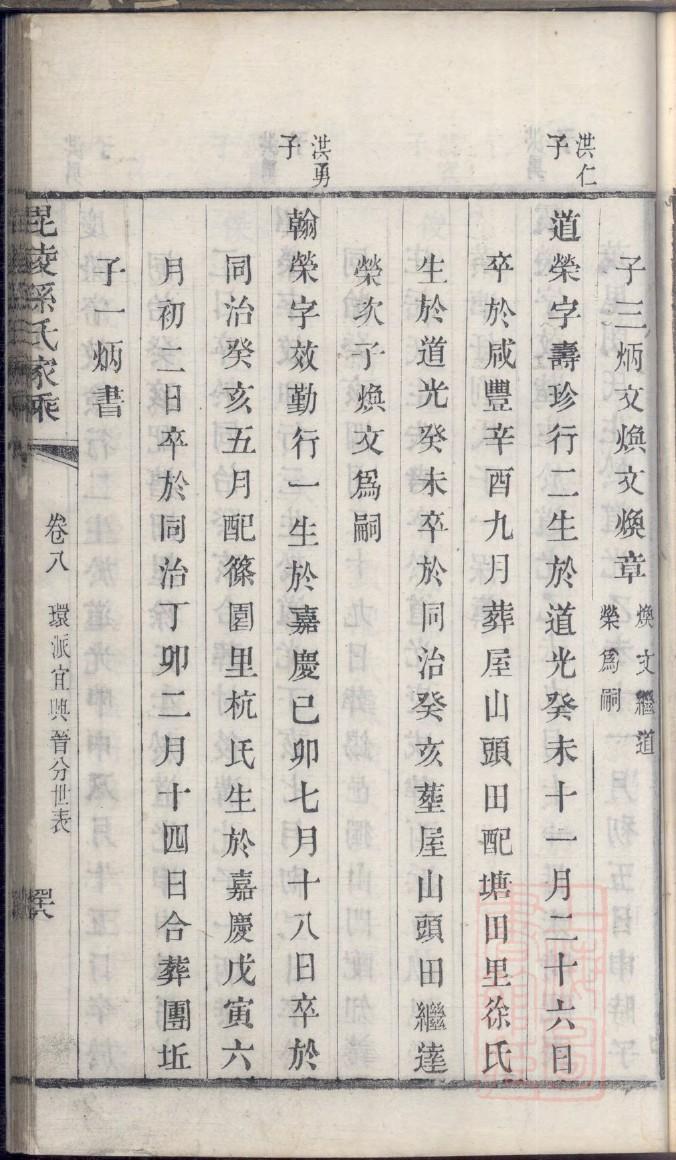 子三炳文煥文煥章煥文繼道
榮爲嗣
洪仁
子
道榮字壽珍行二生於道光癸未十一月二十六日
卒於咸豐辛酉九月葬屋山頭田配塘田里徐氏
生於道光癸未卒於同治癸亥塟屋山頭田繼達
榮次子煥文爲嗣
洪勇
子
翰榮字效勤行一生於嘉慶己卯七月十八日卒於
同治癸亥五月配篠園里杭氏生於嘉慶戊寅六
月初二日卒於同治丁卯二月十四日合葬團坵
子一炳書
毘陵孫氏家乘
卷八
環派宜興晉分世表